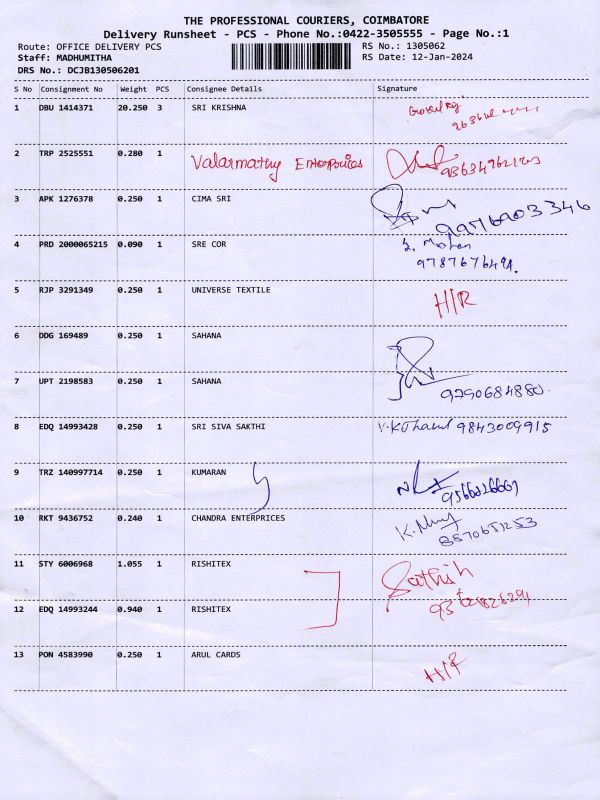 THE PROFESSIONAL COURIERS, COIMBATORE
Delivery Runsheet - PCS - Phone No.:0422-3505555 - Page No.:1
Route: OFFICE DELIVERY PCS RS No.: 1305062
Staff: MADHUMITHA RS Date: 12-Jan-2024
DRS No.: DCJB130506201
S No Consignment No Weight PCS Consignee Details Signature
1 DBU 1414371 20.250 3 SRI KRISHNA
2 TRP 2525551 0.280 1 Valarmathy Enterprises
3 APK 1276378 0.250 1 CIMA SRI
9976903346
4 PRD 2000065215 0.090 1 SRE COR S. Mohan
5 RJP 3291349 0.250 1 UNIVERSE TEXTILE H/R
6 DDG 169489 0.250 1 SAHANA
7 UPT 2198583 0.250 1 SAHANA
9790684880.
8 EDQ 14993428 0.250 1 SRI SIVA SAKTHI 9843009915
9 TRZ 140997714 0.250 1 KUMARAN
10 RKT 9436752 0.240 1 CHANDRA ENTERPRICES
11 STY 6006968 1.055 1 RISHITEX Sathish
12 EDQ 14993244 0.940 1 RISHITEX
13 PON 4583990 0.250 1 ARUL CARDS H/R